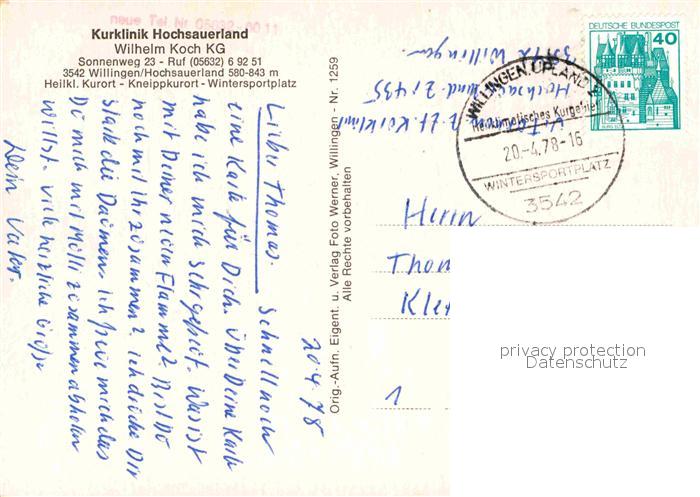 neue Tel Nr 05632-
Kurklinik Hochsauerland
Wilhelm Koch KG
Sonnenweg 23 - Ruf (05632) 6 92 51
3542 Willingen/Hochsauerland 580-843 m
Heilkl. Kurort - Kneippkurort - Wintersportplatz
20.4.78
Lieber Thomas.
Schnell noch
eine Karte für Dich. Über Deine Karte
habe ich mich sehr gefreut. Was ist
mit Deiner neuen Flamme? Bist Du
noch mit ihr zusammen? Ich drücke Dir
stark die Daumen. Ich freue mich das
Du mich mit Molli zusammen abholen
willst. viele herzliche Grüße
Dein Vater.
Orig.-Aufn. Eigent. u. Verlag Foto Werner, Willingen - Nr. 1259
Alle Rechte vorbehalten
z. Zt. Kurklinik
Hochsauerland Z. 435
3542 Willingen
DEUTSCHE BUNDESPOST
40
WILLINGEN, UPLAND
Heilklimatisches Kurgebiet
20.-4.78-16
WINTERSPORTPLATZ
3542
Herrn
Thom
Kle
1
privacy protection
Datenschutz